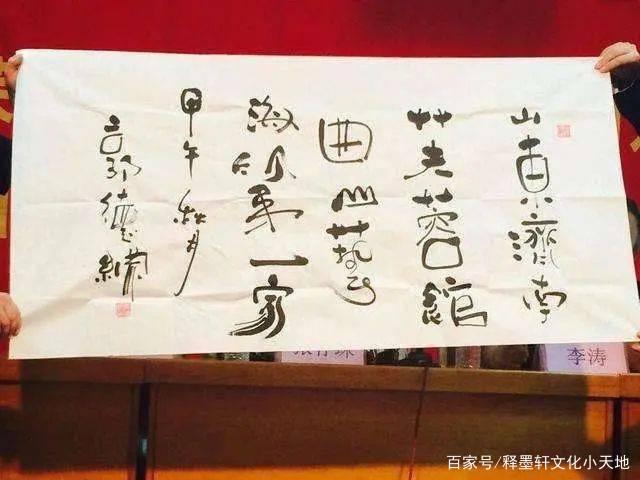 山東濟南
芙蓉館
曲山藝
海第一家
甲午秋月
郭德綱
李涛
百家号/释墨轩文化小天地